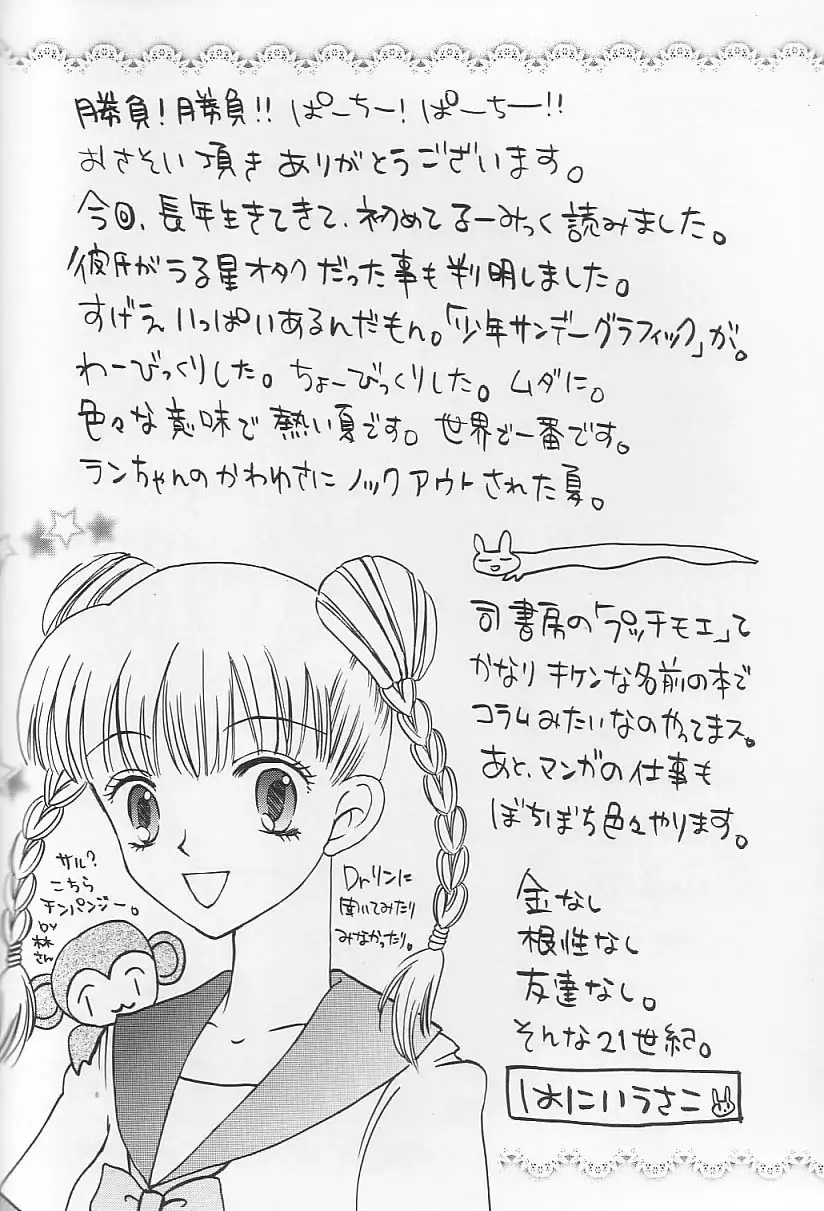 勝負！勝負！！ ぱーちー！ぱーちー！！
おさそい頂きありがとうございます。
今回、長年生きてきて、初めてるーみっく読みました。
彼氏がうる星オタクだった事も判明しました。
すげえいっぱいあるんだもん。「少年サンデーグラフィック」が。
わーびっくりした。ちょーびっくりした。ムダに。
色々な意味で熱い夏です。世界で一番です。
ランちゃんのかわゆさにノックアウトされた夏。
司書房の「プッチモエ」て
かなりキケンな名前の本で
コラムみたいなのやってまス。
あと、マンガの仕事も
ぼちぼち色々やります。
金なし
根性なし
友達なし。
そんな21世紀。
はにいうさこ
サル？
こちら
チンパンジー。
by
林
さん
Drリンに
聞いてみたり
みなかったり。